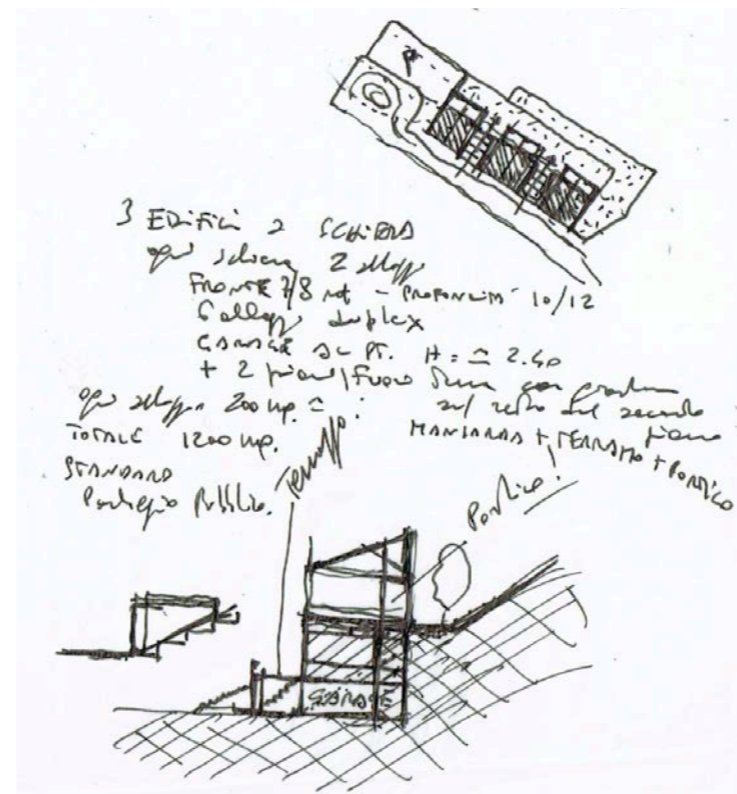 3 EDIFICI a SCHIERA
ogni schiera 2 alloggi
FRONTE 7/8 mt - PROFONDITA' 10/12
6 alloggi duplex
GARAGE al PT. H = ≃ 2.40
+ 2 piani fuori con
ogni alloggio 200 mq. ≃ sul del secondo piano
TOTALE 1200 mq. MANSARDA + TERRAZZO + PORTICO
STANDARD
Parcheggio Pubblico.
Terrazzo
Portico!
GARAGE